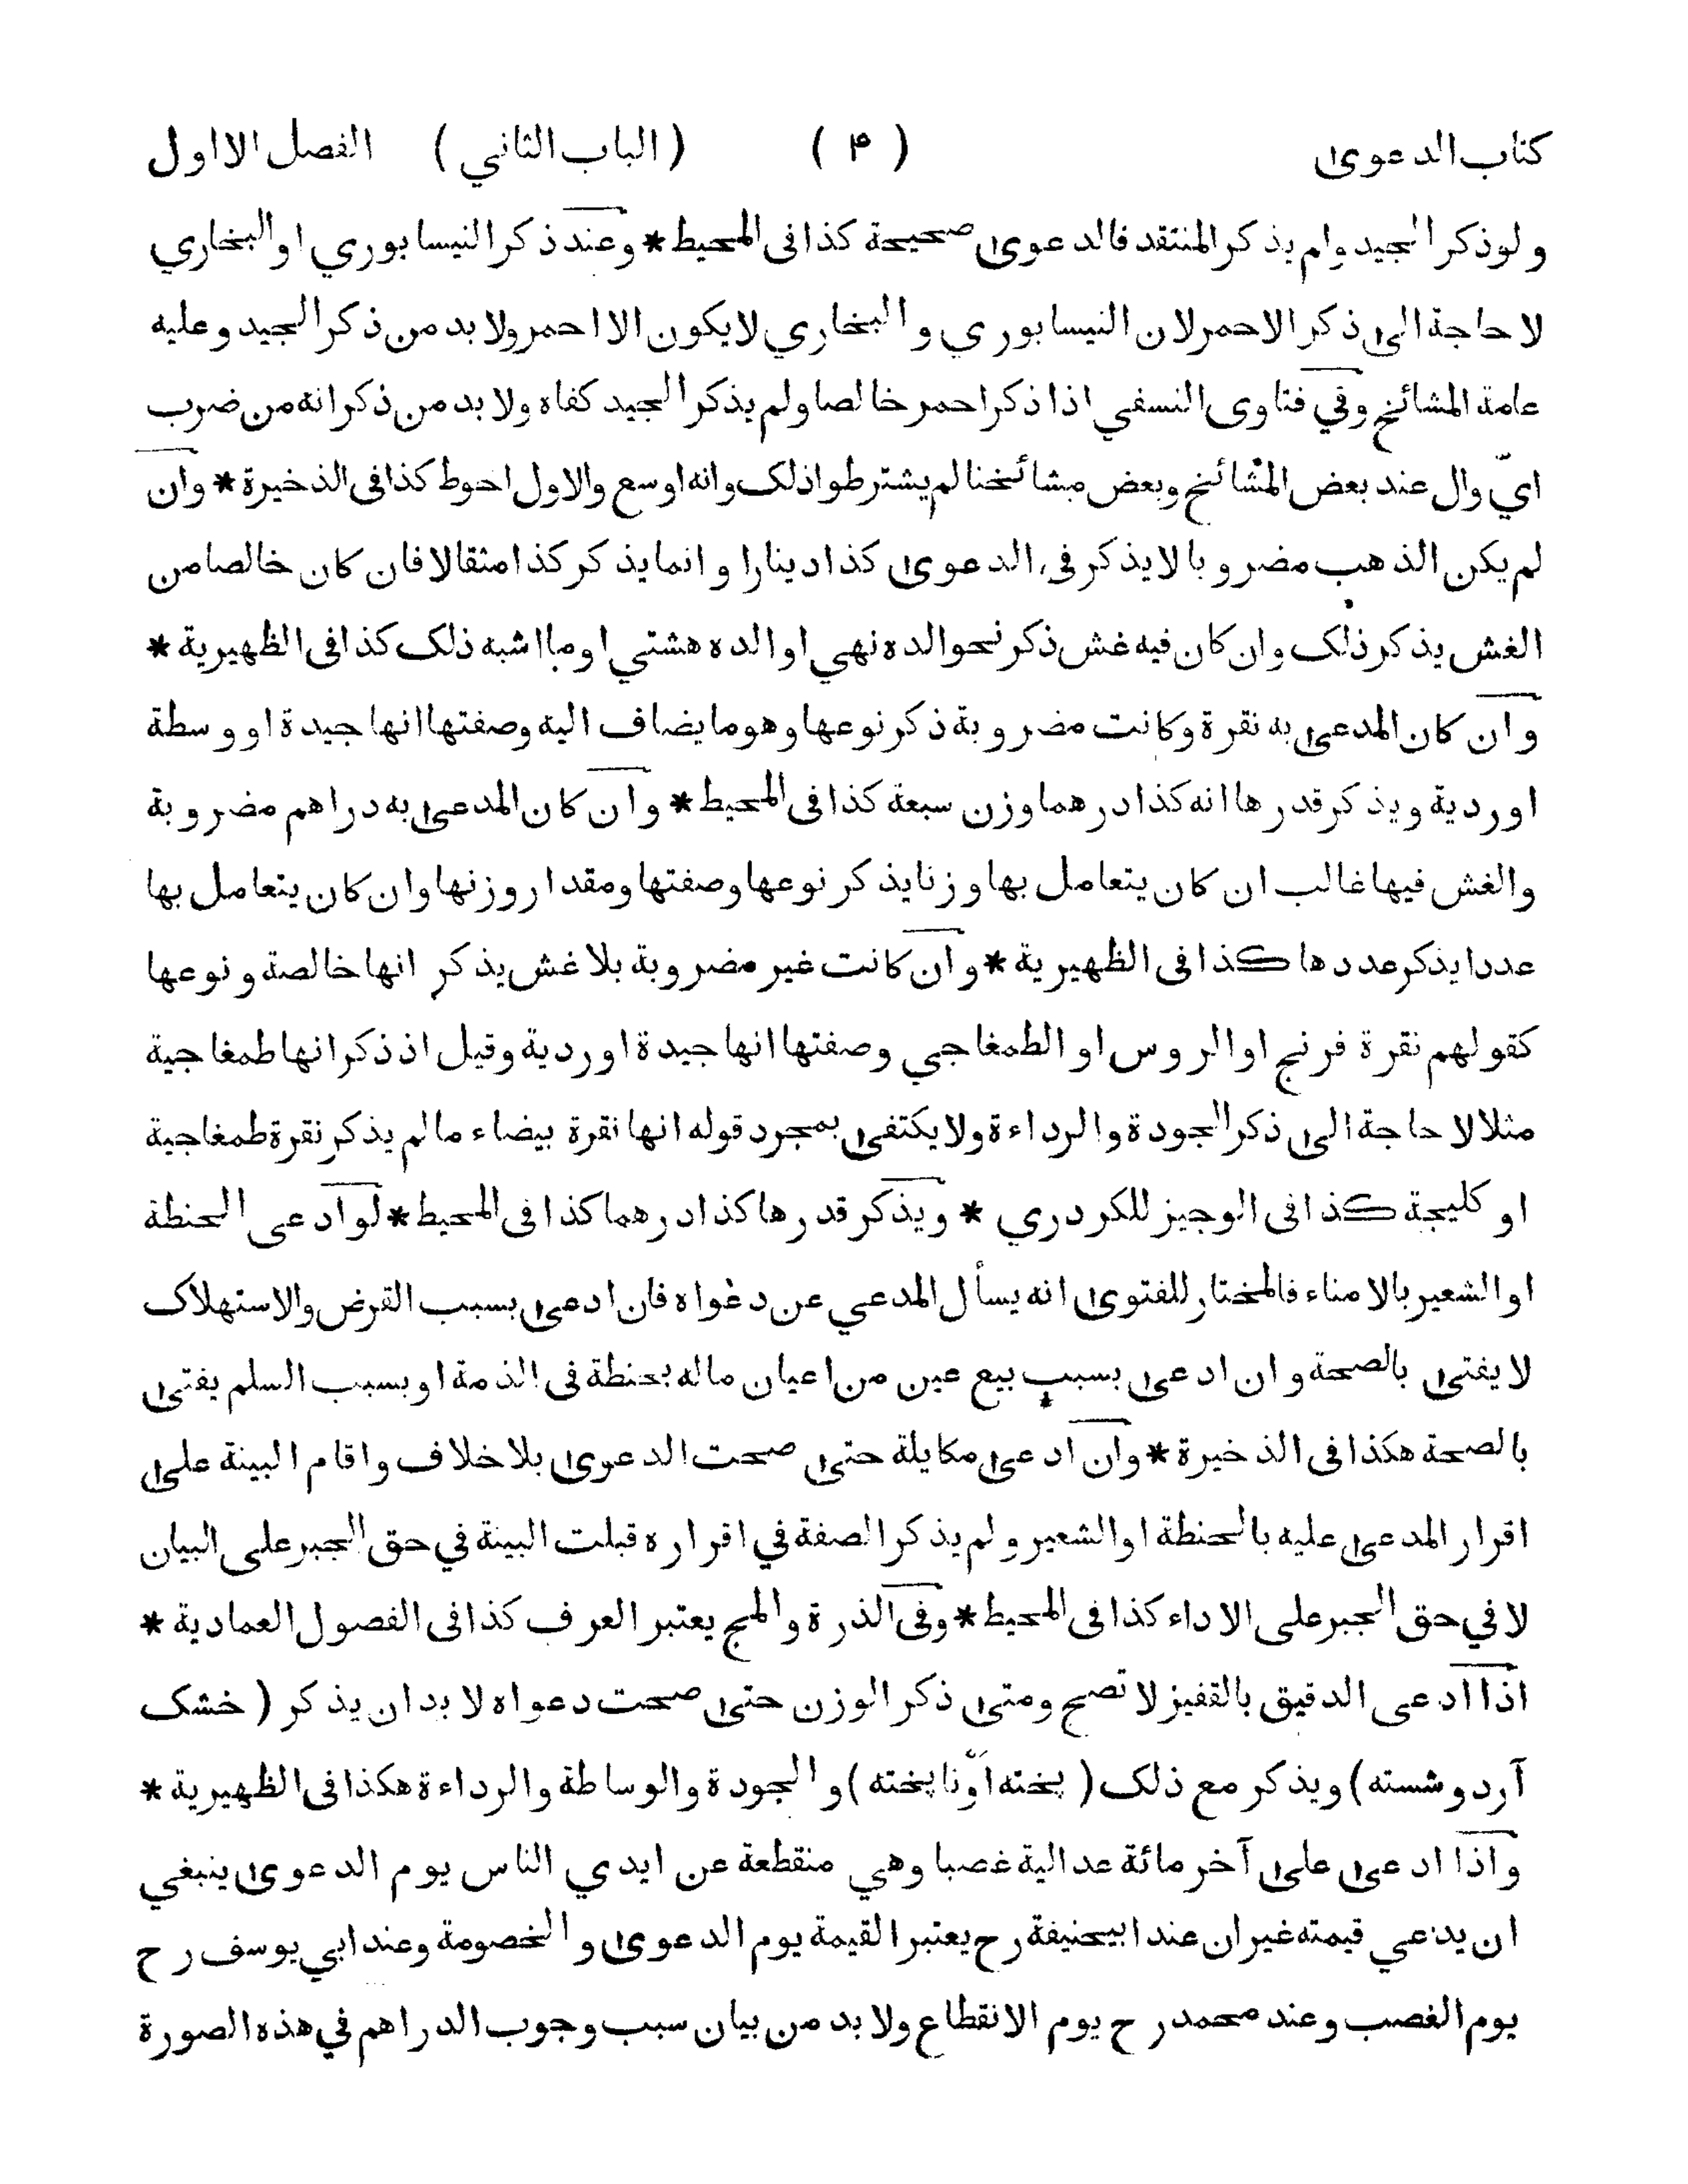 كتاب الدعوى ( ۴ ) ( الباب الثاني ) الفصل الاول
ولو ذكر الجيد ولم يذكر المنتقد فالدعوى صحيحة كذا فى المحيط * وعند ذكر النيسابوري او البخاري
لا حاجة الى ذكر الاحمر لان النيسابوري والبخاري لا يكون الا احمر ولا بد من ذكر الجيد وعليه
عامة المشائخ وفي فتاوى النسفي اذا ذكر احمر خالصا ولم يذكر الجيد كفاه ولا بد من ذكر انه من ضرب
ايّ وال عند بعض المشائخ وبعض مشائخنا لم يشترطوا ذلك وانه اوسع والاول احوط كذا فى الذخيرة * وان
لم يكن الذهب مضروبا لا يذكر فى الدعوى كذا دينارا وانما يذكر كذا مثقالا فان كان خالصا من
الغش يذكر ذلك وان كان فيه غش ذكر نحو الده نهي او الده هشتي او ما اشبه ذلك كذا فى الظهيرية *
وان كان المدعى به نقرة وكانت مضروبة ذكر نوعها وهو ما يضاف اليه وصفتها انها جيدة او وسطة
او ردية ويذكر قدرها انه كذا درهما وزن سبعة كذا فى المحيط * وان كان المدعى به دراهم مضروبة
والغش فيها غالب ان كان يتعامل بها وزنا يذكر نوعها وصفتها ومقدار وزنها وان كان يتعامل بها
عددا يذكر عددها كذا فى الظهيرية * وان كانت غير مضروبة بلا غش يذكر انها خالصة ونوعها
كقولهم نقرة فرنج او الروس او الطمغاجي وصفتها انها جيدة او ردية وقيل اذ ذكر انها طمغاجية
مثلا لا حاجة الى ذكر الجودة والرداءة ولا يكتفى بمجرد قوله انها نقرة بيضاء ما لم يذكر نقرة طمغاجية
او كليجة كذا فى الوجيز للكردري * ويذكر قدرها كذا درهما كذا فى المحيط * لو ادعى الحنطة
او الشعير بالامناء فالمختار للفتوى انه يسأل المدعي عن دعواه فان ادعى بسبب القرض والاستهلاك
لا يفتى بالصحة وان ادعى بسبب بيع عين من اعيان ماله بحنطة فى الذمة او بسبب السلم يفتى
بالصحة هكذا فى الذخيرة * وان ادعى مكايلة حتى صحت الدعوى بلا خلاف واقام البينة على
اقرار المدعى عليه بالحنطة او الشعير ولم يذكر الصفة في اقراره قبلت البينة في حق الجبر على البيان
لا في حق الجبر على الاداء كذا فى المحيط * وفى الذرة والمج يعتبر العرف كذا فى الفصول العمادية *
اذا ادعى الدقيق بالقفيز لا تصح ومتى ذكر الوزن حتى صحت دعواه لا بد ان يذكر ( خشک
آرد و شسته ) ويذكر مع ذلك ( پخته او ناپخته ) والجودة والوساطة والرداءة هكذا فى الظهيرية *
واذا ادعى على آخر مائة عدالية غصبا وهي منقطعة عن ايدي الناس يوم الدعوى ينبغي
ان يدعي قيمته غير ان عند ابيحنيفة رح يعتبر القيمة يوم الدعوى والخصومة وعند ابي يوسف رح
يوم الغصب وعند محمد رح يوم الانقطاع ولا بد من بيان سبب وجوب الدراهم في هذه الصورة